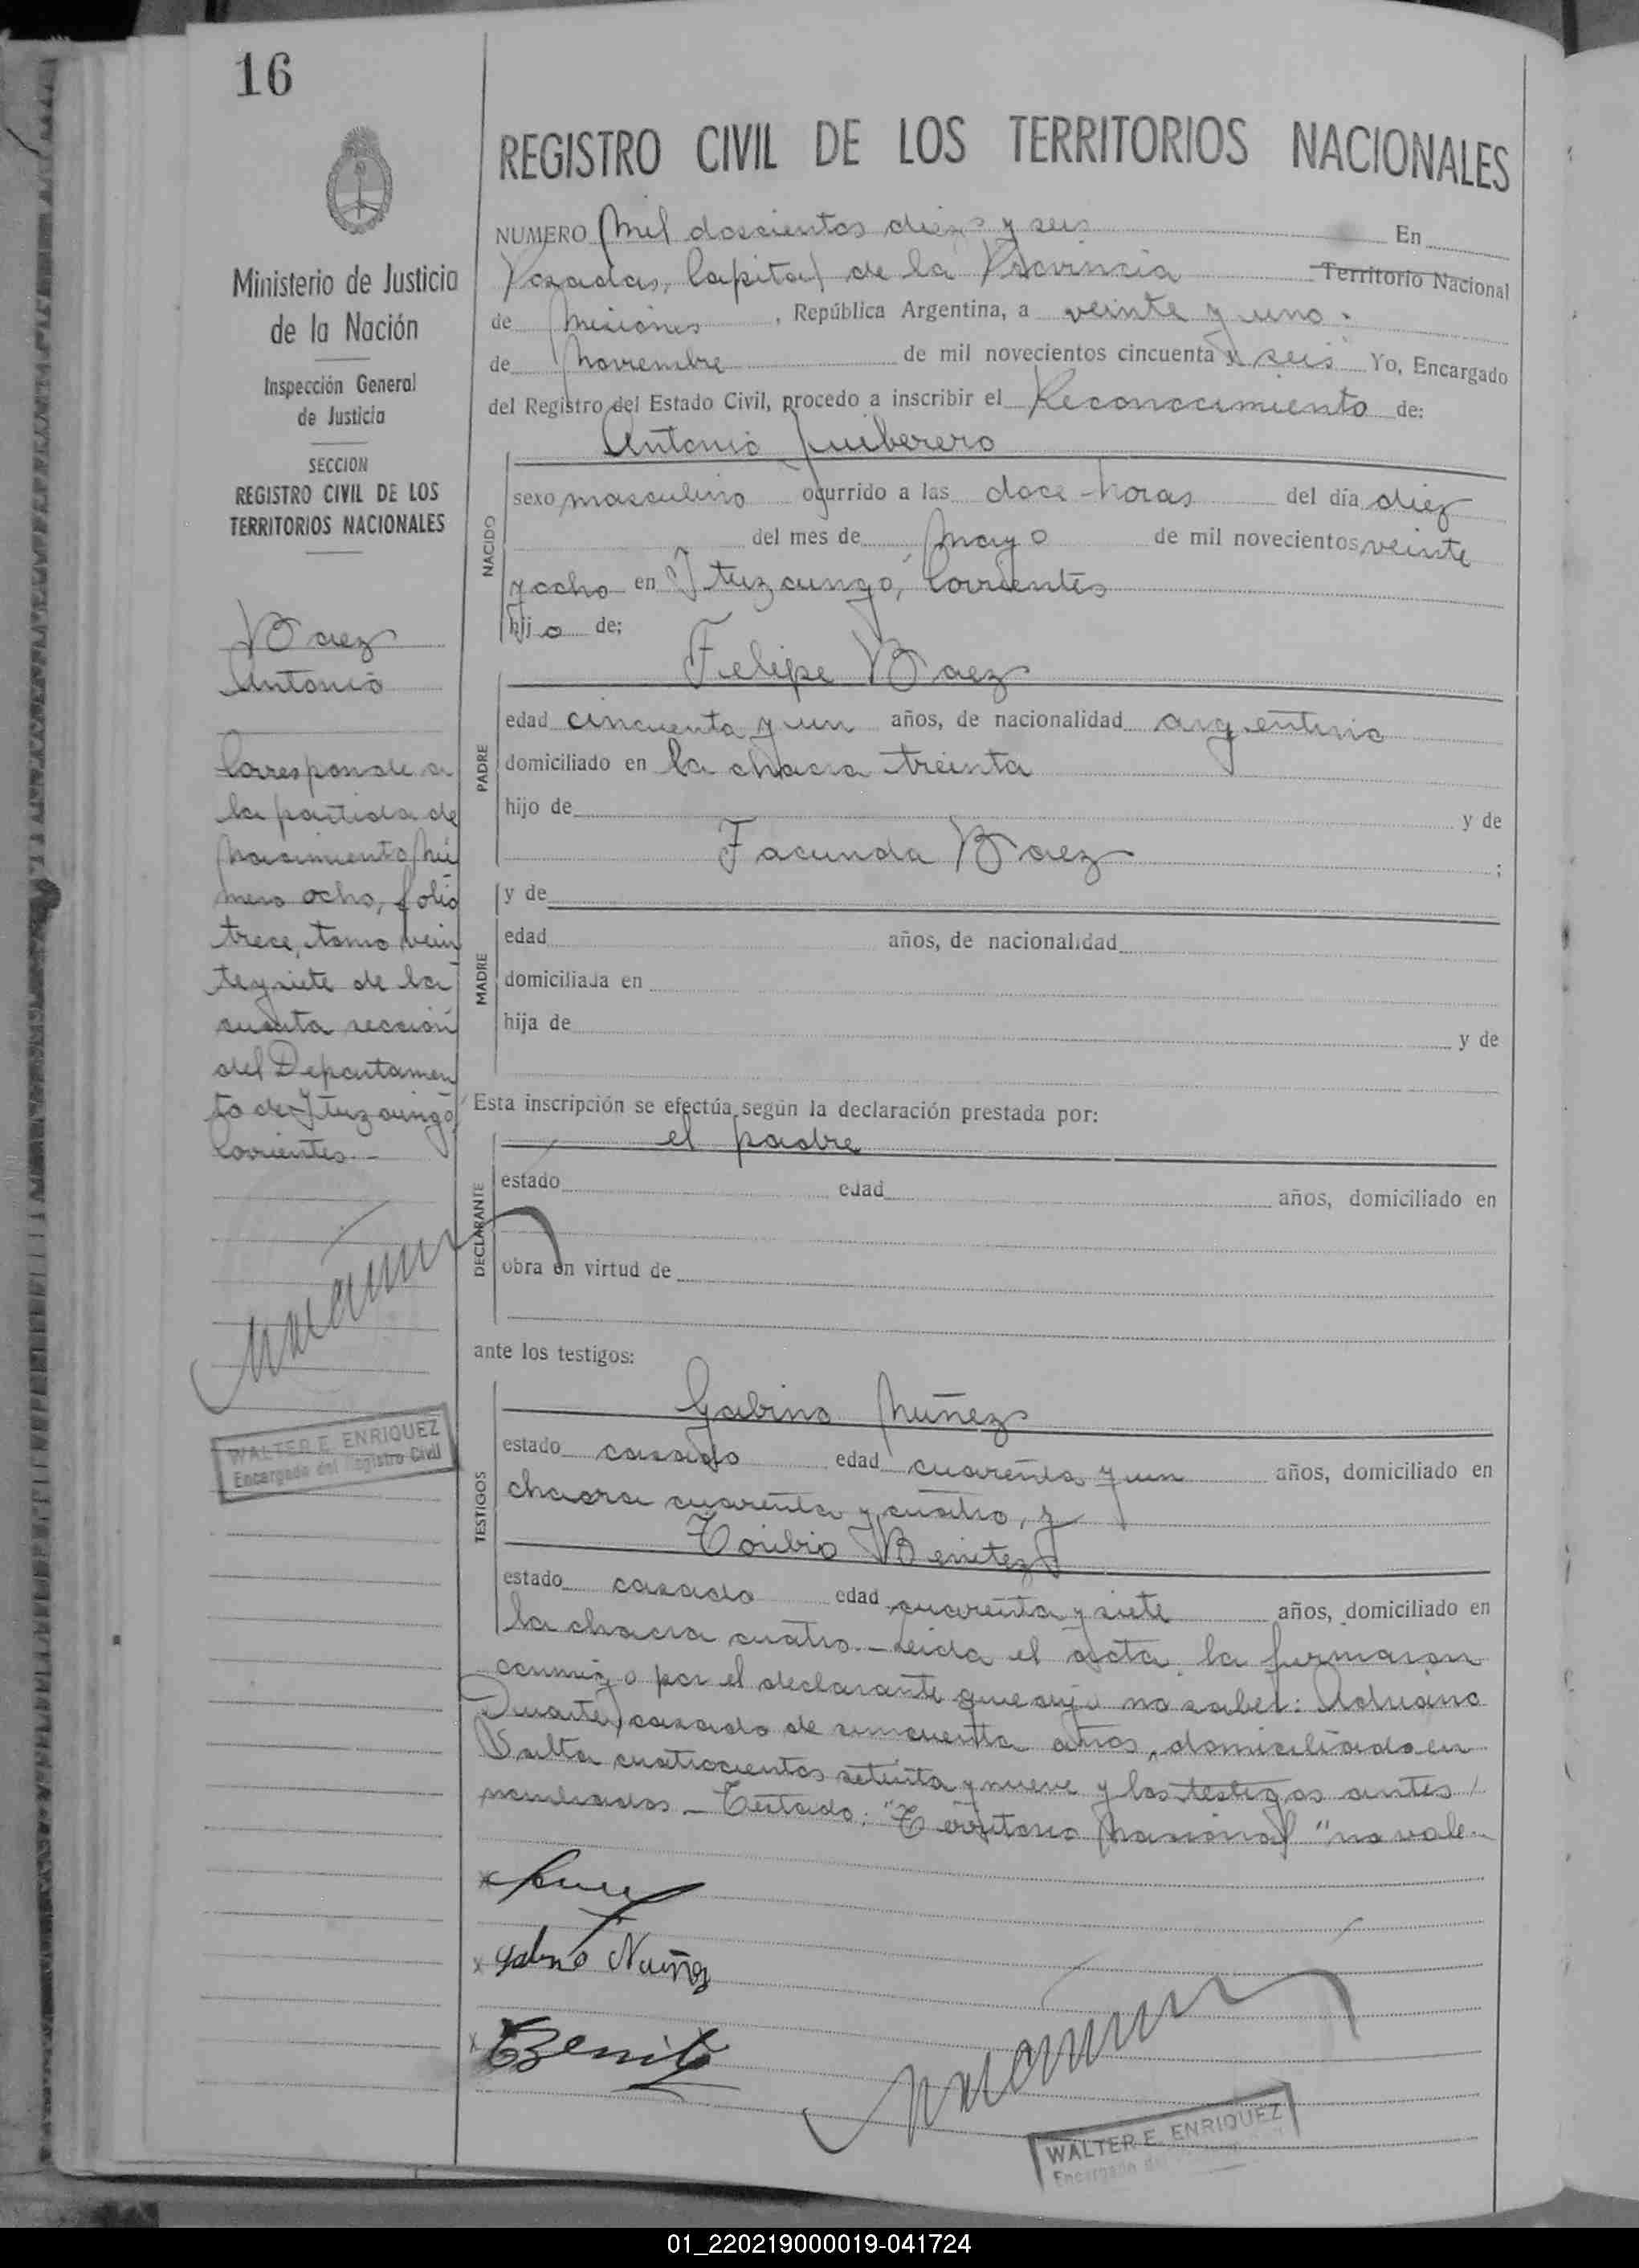 16
Ministerio de Justicia
de la Nación
Inspección General
de Justicia
SECCION
REGISTRO CIVIL DE LOS
TERRITORIOS NACIONALES
Baez
Antonio
Corresponde a
la partida de
nacimiento nú
mero ocho, folio
trece, tomo vein
te y siete de la
cuarta sección
del Departamen
to de Ituzaingó,
Corrientes.-
WALTER E. ENRIQUEZ
Encargado del Registro Civil
REGISTRO CIVIL DE LOS TERRITORIOS NACIONALES
NUMERO Mil doscientos diez y seis En
Posadas, Capital de la Provincia Territorio Nacional
de Misiones, República Argentina, a veinte y uno
de Noviembre de mil novecientos cincuenta y seis Yo, Encargado
del Registro del Estado Civil, procedo a inscribir el Reconocimiento de:
Antonio
NACIDO
sexo masculino ocurrido a las doce horas del día diez
del mes de Mayo de mil novecientos veinte
y ocho en Ituzaingó, Corrientes
hijo de;
Felipe Baez
PADRE
edad cincuenta y un años, de nacionalidad argentino
domiciliado en la chacra treinta
hijo de y de
Facunda Baez ;
MADRE
y de
edad años, de nacionalidad
domiciliada en
hija de y de
Esta inscripción se efectúa según la declaración prestada por:
el padre
DECLARANTE
estado edad años, domiciliado en
obra en virtud de
ante los testigos:
TESTIGOS
Gabino Núñez
estado casado edad cuarenta y un años, domiciliado en
chacra cuarenta y cuatro, y
Toribio Benitez
estado casado edad cuarenta y siete años, domiciliado en
la chacra cuatro.- Leida el acta la firmaron
conmigo por el declarante que dijo no saber: Adriano
Duarte, casado de cincuenta años, domiciliado en
Salta cuatrocientos setenta y nueve y los testigos antes
nombrados.- Testado: "Territorio Nacional" no vale.-
Gabino Nuñez
TBenitez
WALTER E. ENRIQUEZ
Encargado del
01_220219000019-041724